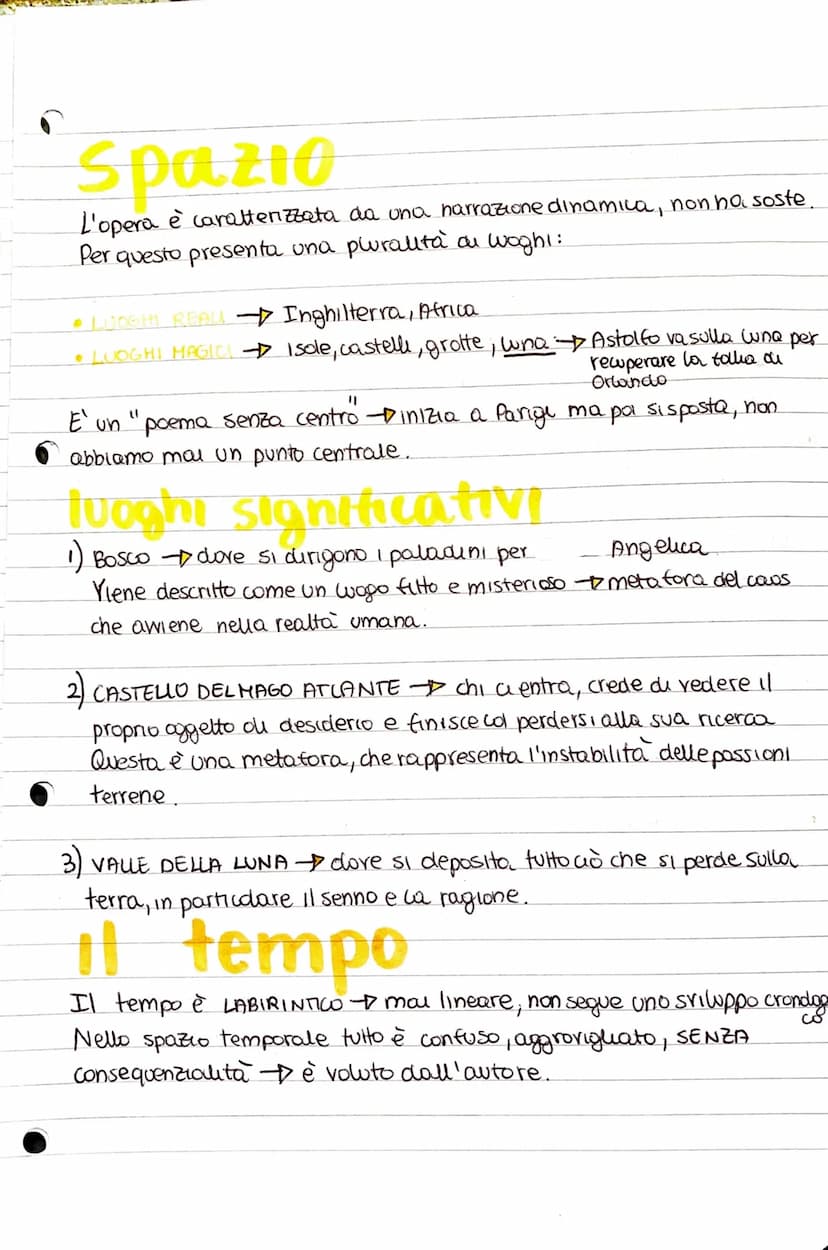 Spazio
L'opera è caratterizzata da una narrazione dinamica, non ha soste.
Per questo presenta una pluralità di luoghi:
• LUOGHI REALI → Inghilterra, Africa
• LUOGHI MAGICI → isole, castelli, grotte, luna → Astolfo va sulla luna per
recuperare la follia di
Orlando
E' un "poema senza centro" → inizia a Parigi ma poi si sposta, non
abbiamo mai un punto centrale.
luoghi significativi
1) BOSCO → dove si dirigono i paladini per Angelica
Viene descritto come un luogo fitto e misterioso → metafora del caos
che avviene nella realtà umana.
2) CASTELLO DEL MAGO ATLANTE → chi ci entra, crede di vedere il
proprio oggetto di desiderio e finisce col perdersi alla sua ricerca
Questa è una metafora, che rappresenta l'instabilità delle passioni
terrene.
3) VALLE DELLA LUNA → dove si deposita tutto ciò che si perde sulla
terra, in particolare il senno e la ragione.
il tempo
Il tempo è LABIRINTICO → mai lineare, non segue uno sviluppo cronologi
co
Nello spazio temporale tutto è confuso, aggrovigliato, SENZA
consequenzialità → è voluto dall'autore.